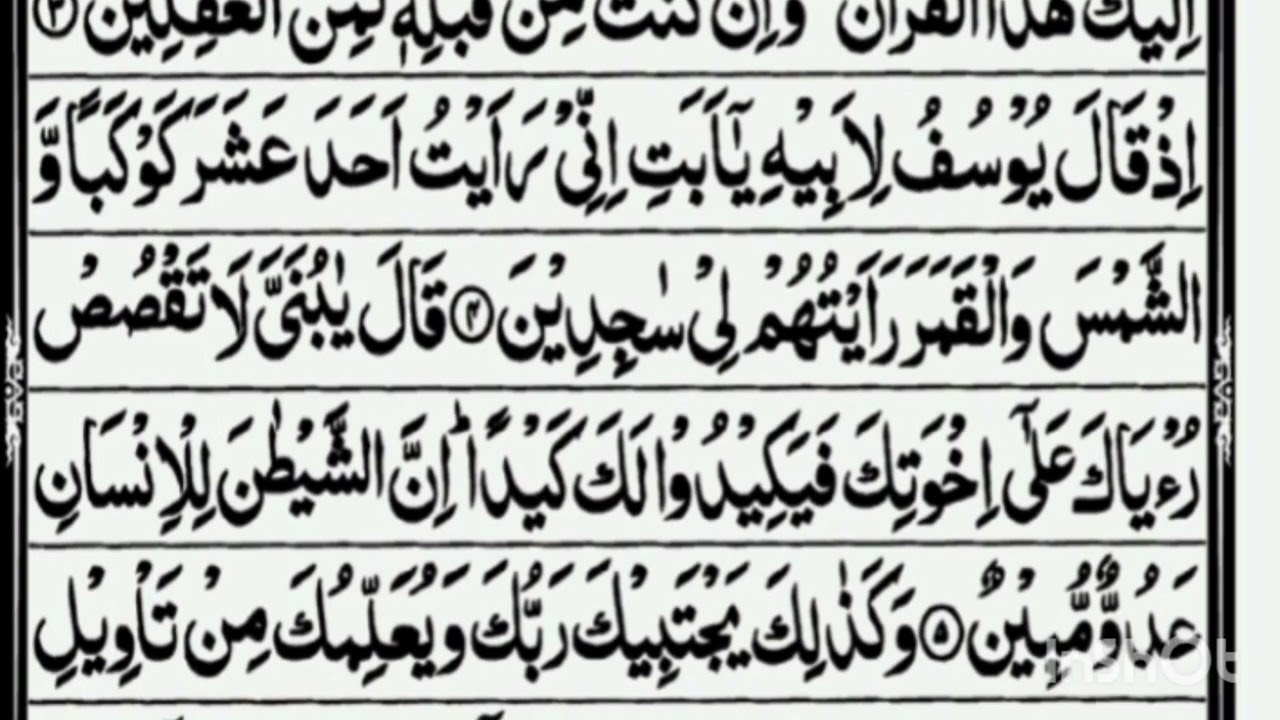 اِلَيْكَ هٰذَا الْقُرْاٰنَ وَاِنْ كُنْتَ مِنْ قَبْلِهٖ لَمِنَ الْغٰفِلِيْنَ ۝۳
اِذْ قَالَ يُوْسُفُ لِاَبِيْهِ يٰۤاَبَتِ اِنِّىْ رَاَيْتُ اَحَدَ عَشَرَ كَوْكَبًا وَّ
الشَّمْسَ وَالْقَمَرَ رَاَيْتُهُمْ لِىْ سٰجِدِيْنَ ۝۴ قَالَ يٰبُنَىَّ لَا تَقْصُصْ
رُءْيَاكَ عَلٰۤى اِخْوَتِكَ فَيَكِيْدُوْا لَكَ كَيْدًا ؕ اِنَّ الشَّيْطٰنَ لِلْاِنْسَانِ
عَدُوٌّ مُّبِيْنٌ ۝۵ وَكَذٰلِكَ يَجْتَبِيْكَ رَبُّكَ وَيُعَلِّمُكَ مِنْ تَاْوِيْلِ
InShOt